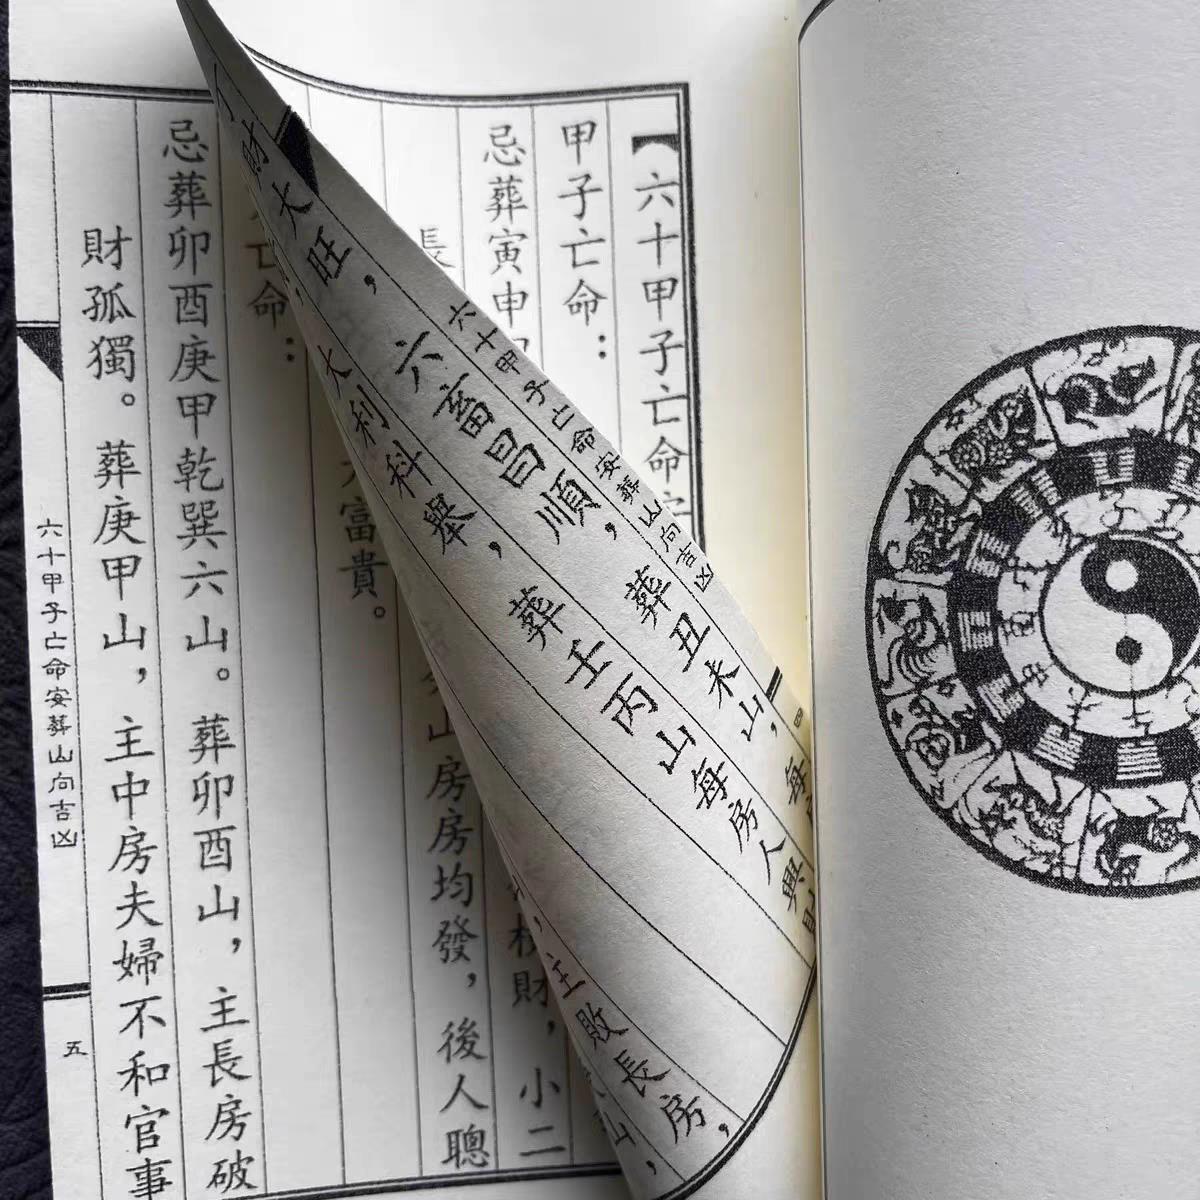 【六十甲子亡命
甲子亡命：
忌葬寅申
長
山房房均發，後人聰
財，小二
富貴。
亡命：
忌葬卯酉庚甲乾巽六山。葬卯酉山，主長房破
財孤獨。葬庚甲山，主中房夫婦不和官事
六十甲子亡命安葬山向吉凶
五
六十甲子亡命安葬山向吉凶
葬丑未山，每
六畜昌順，葬壬丙山每房人興財
大利科舉，
財大旺，
主敗長房，
山，